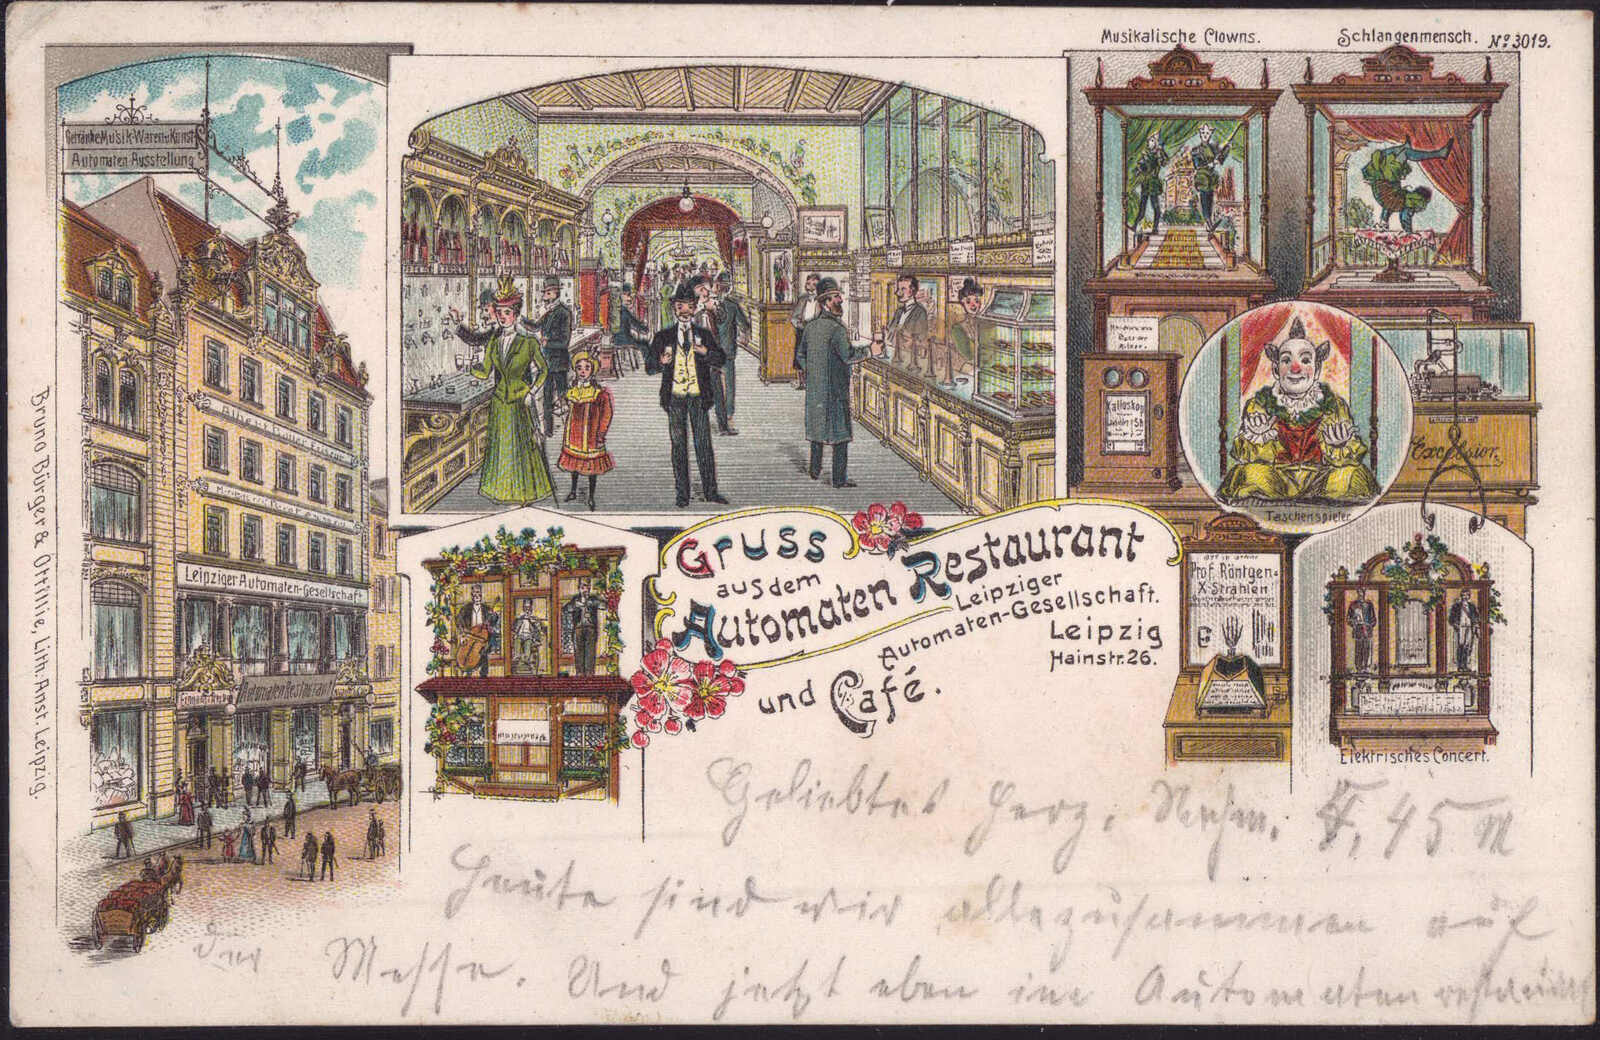 Musikalische Clowns.
Schlangenmensch.
No 3019.
Getränke Musik-Waren u. Kunst
Automaten Ausstellung
Leipziger Automaten-Gesellschaft
Automaten Restaurant
Bruno Bürger & Ottillie, Lith. Anst. Leipzig.
Kalloskop
Excelsior.
Taschenspieler
Prof. Röntgen
X-Strahlen
Elektrisches Concert.
Gruss
aus dem
Automaten Restaurant
Leipziger
Automaten-Gesellschaft.
Leipzig
Hainstr. 26.
und Café.
Geliebtes Herz. Nachm. 45 M
Heute sind wir alle zusammen auf
der Messe. Und jetzt eben im Automatenrestaurant